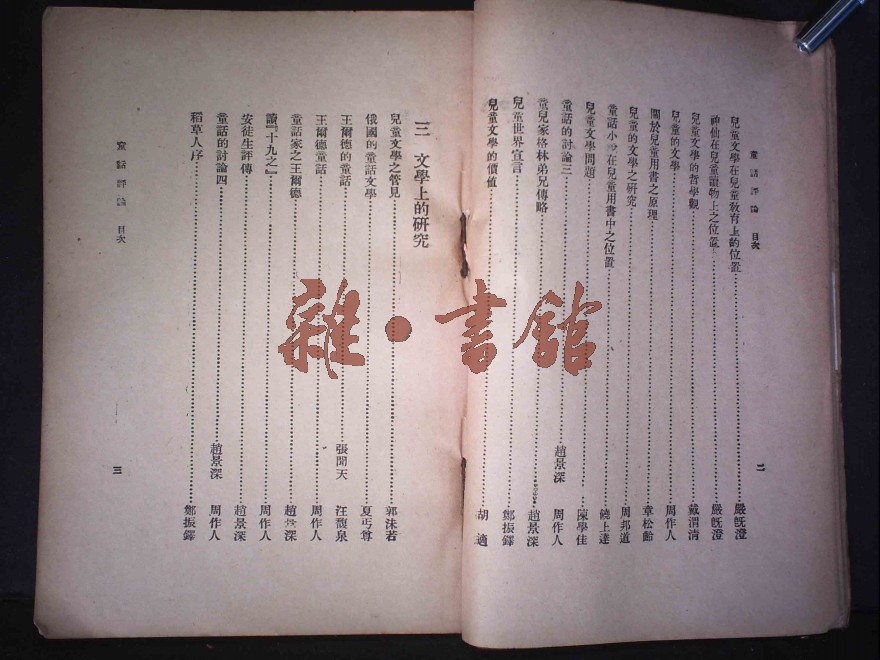 童話評論 目次
二
兒童文學在兒童教育上的位置 嚴旣澄
神仙在兒童讀物上之位置 嚴旣澄
兒童文學的哲學觀 戴渭清
兒童的文學 周作人
關於兒童用書之原理 章松齡
兒童的文學之研究 周邦道
童話小說在兒童用書中之位置 饒上達
兒童文學問題 陳學佳
童話的討論三 趙景深 周作人
童兒家格林弟兄傳略 趙景深
兒童世界宣言 鄭振鐸
兒童文學的價值 胡適
三 文學上的研究
兒童文學之管見 郭沫若
俄國的童話文學 夏丏尊
王爾德的童話 張聞天 汪馥泉
王爾德童話 周作人
童話家之王爾德 趙景深
讀『十九之』 周作人
安徒生評傳 趙景深
童話的討論四 趙景深 周作人
稻草人序 鄭振鐸
童話評論 目次
三
雜·書館